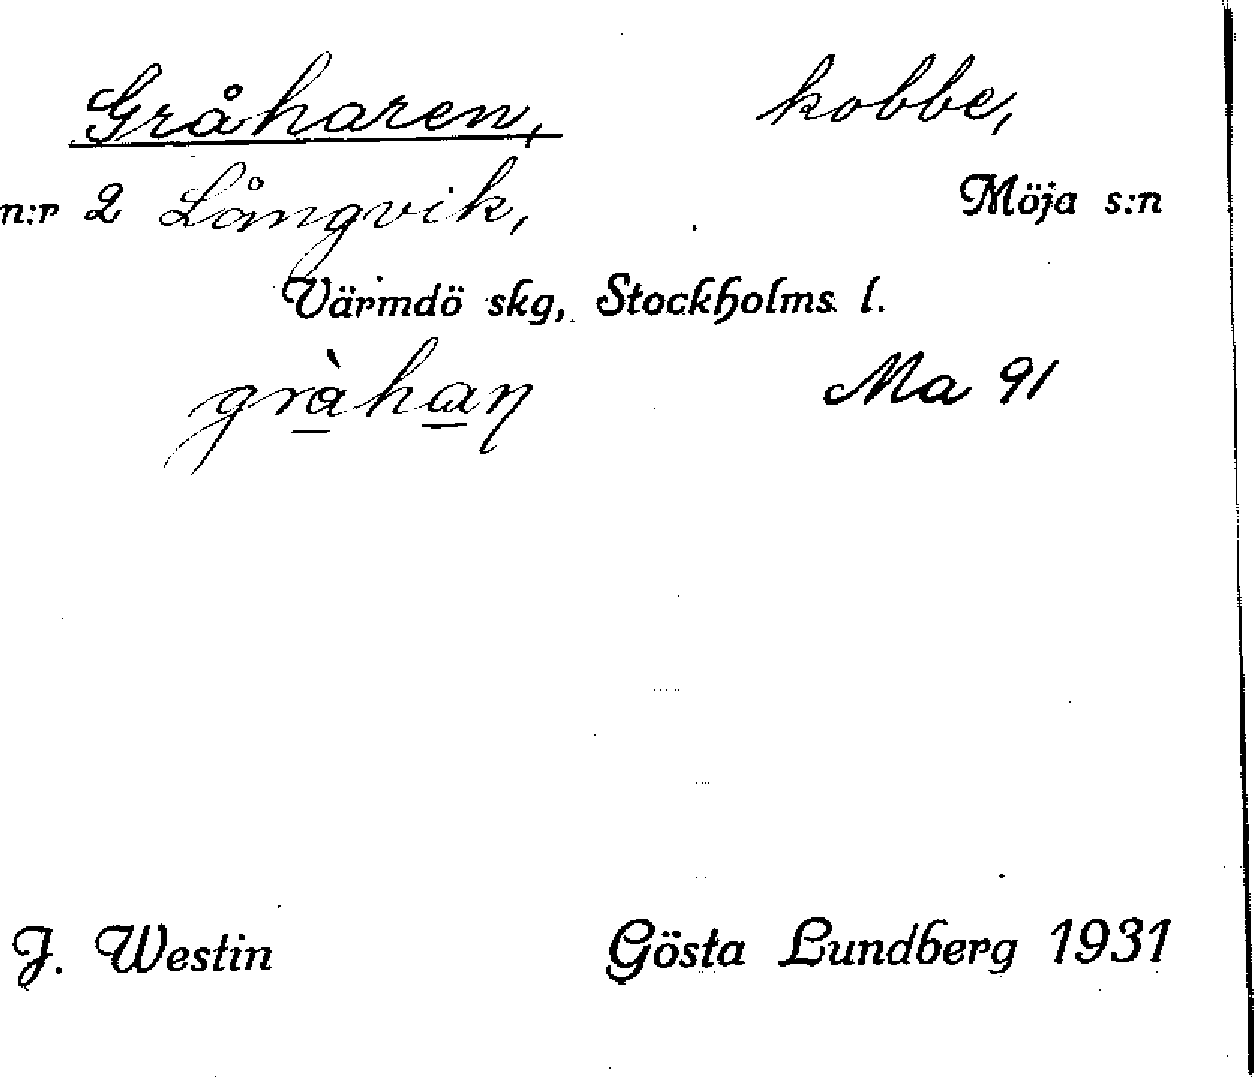 Gråharen, kobbe,
n:r 2 Långvik, Möja s:n
Värmdö skg, Stockholms l.
gràhaꞃ Ma 91
J. Westin Gösta Lundberg 1931